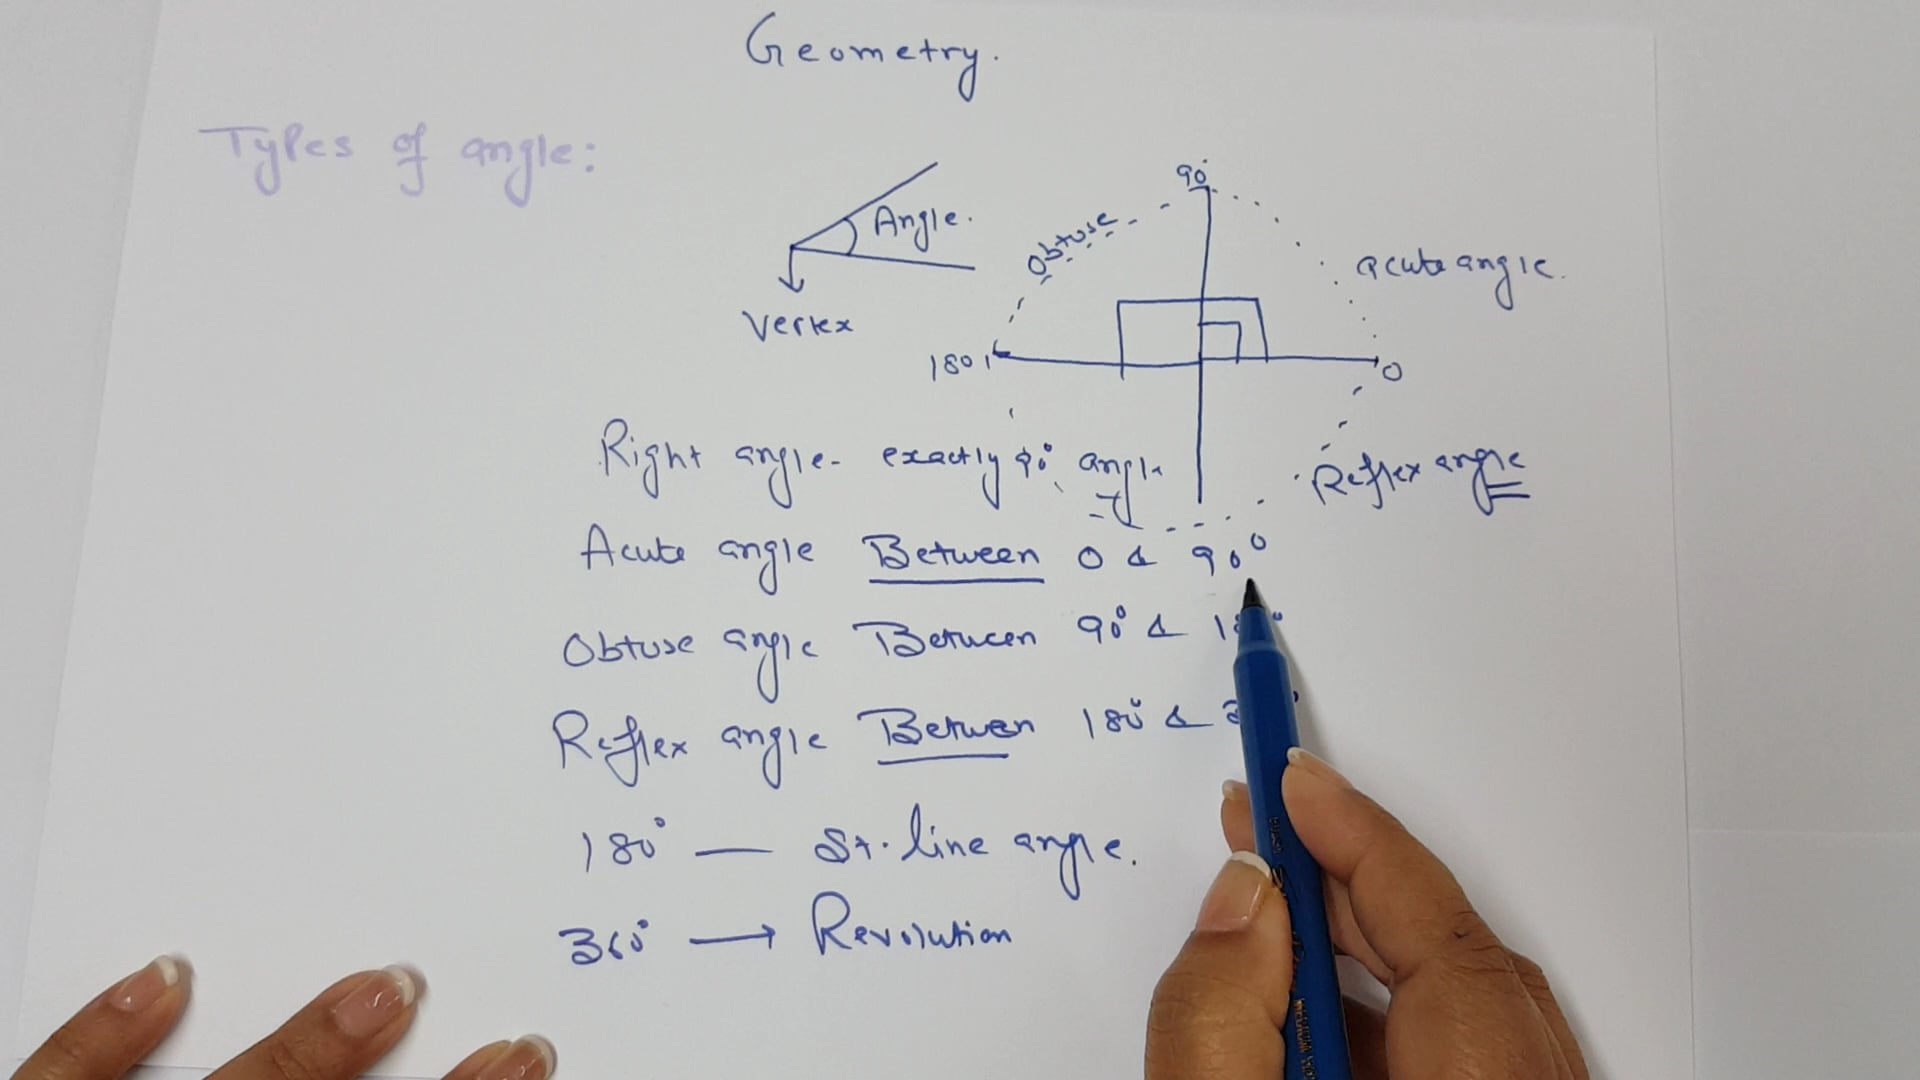 Geometry.
Types of angle:
90°
Obtuse
Angle.
acute angle.
Vertex
180°
0
Right angle - exactly 90° angle
Reflex angle
Acute angle Between 0 & 90°
Obtuse angle Between 90° &
Reflex angle Between 180° &
180° — St. line angle.
360° → Revolution